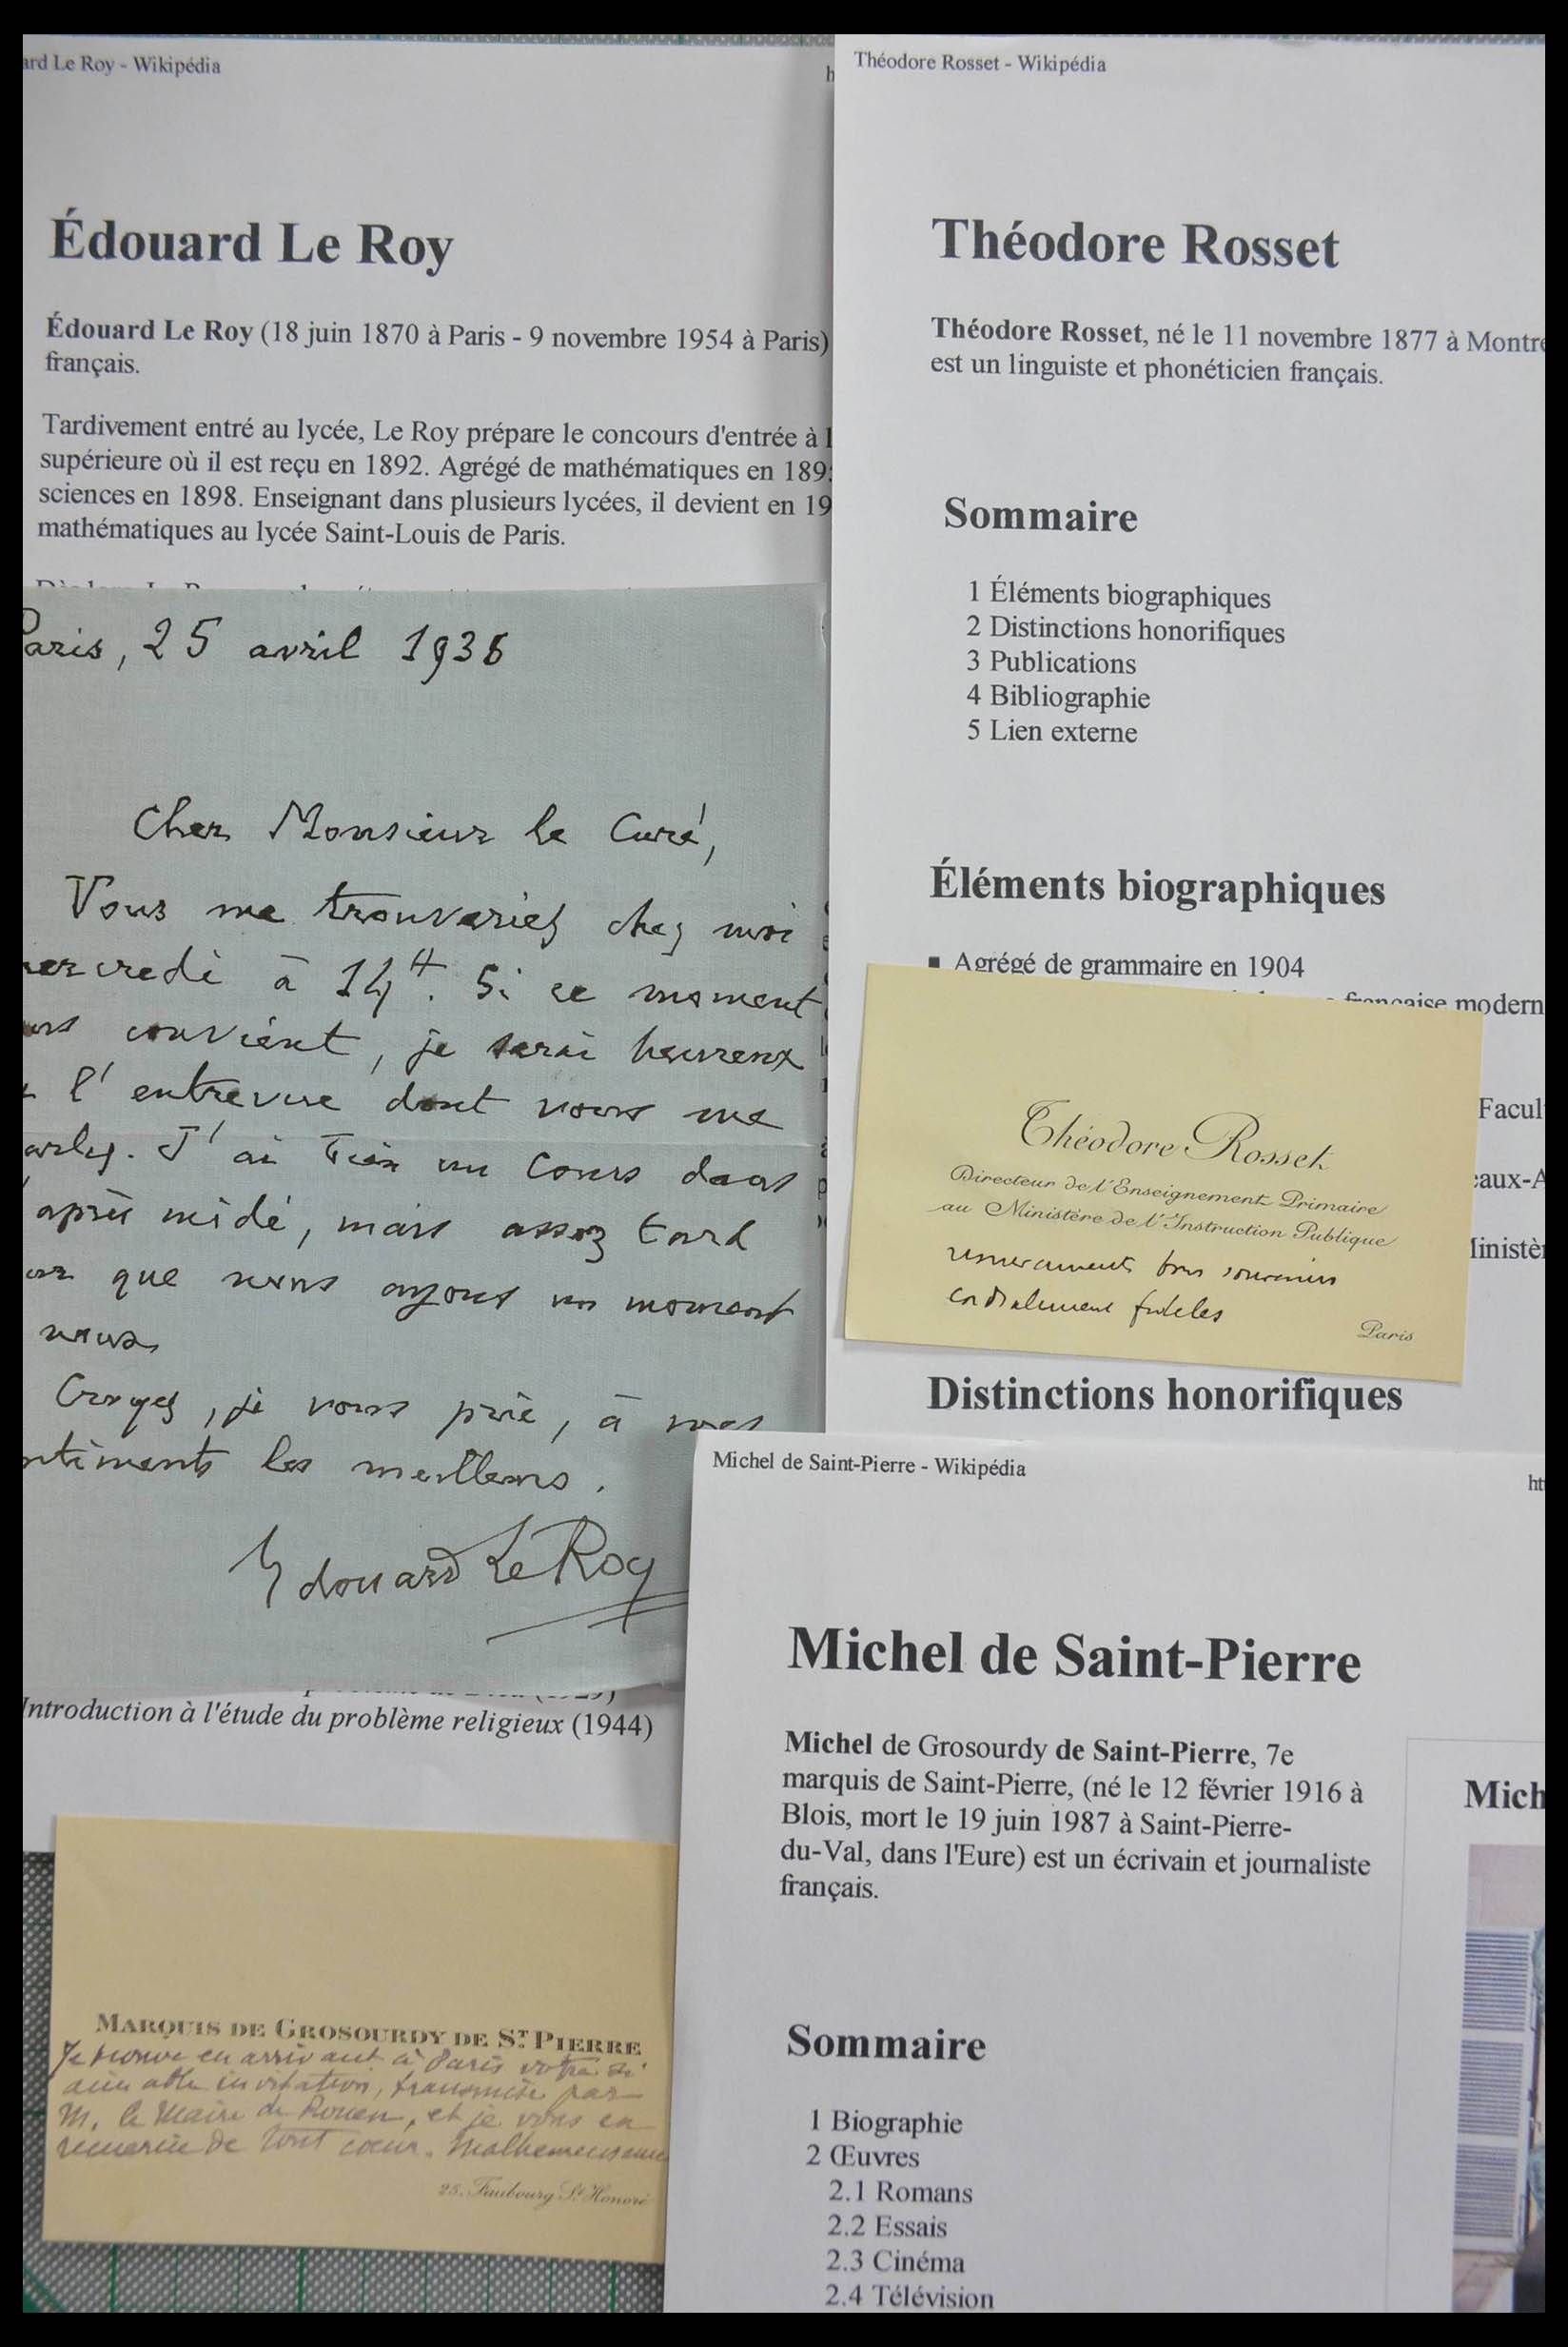 ard Le Roy - Wikipédia
Édouard Le Roy
Édouard Le Roy (18 juin 1870 à Paris - 9 novembre 1954 à Paris)
français.
Tardivement entré au lycée, Le Roy prépare le concours d'entrée à
supérieure où il est reçu en 1892. Agrégé de mathématiques en 189
sciences en 1898. Enseignant dans plusieurs lycées, il devient en 19
mathématiques au lycée Saint-Louis de Paris.
Paris, 25 avril 1936
Cher Monsieur le Curé,
Vous me trouveriez chez moi
mercredi à 14H. Si ce moment
convient, je serai heureux
l'entrevue dont vous me
arlez. J'ai bien un Cours dans
après midi, mais assez tard
que nous ayons un moment
nous
Croyez, je vous prie, à mes
ntiments les meilleurs.
Edouard Le Roy
Introduction à l'étude du problème religieux (1944)
MARQUIS DE GROSOURDY DE ST. PIERRE
Je trouve en arrivant à Paris votre si
aimable invitation, transmise par
M. le Maire de Rouen, et je vous en
remercie de tout coeur. Malheureuseme
25, Faubourg St Honoré
Théodore Rosset - Wikipédia
Théodore Rosset
Théodore Rosset, né le 11 novembre 1877 à Montre
est un linguiste et phonéticien français.
Sommaire
1 Éléments biographiques
2 Distinctions honorifiques
3 Publications
4 Bibliographie
5 Lien externe
Éléments biographiques
▪ Agrégé de grammaire en 1904
française modern
Facul
eaux-A
Ministèr
Théodore Rosset
Directeur de l'Enseignement Primaire
au Ministère de l'Instruction Publique
remerciements bons souvenirs
cordialement fidèles
Paris
Distinctions honorifiques
Michel de Saint-Pierre - Wikipédia
htt
Michel de Saint-Pierre
Michel de Grosourdy de Saint-Pierre, 7e
marquis de Saint-Pierre, (né le 12 février 1916 à
Blois, mort le 19 juin 1987 à Saint-Pierre-
du-Val, dans l'Eure) est un écrivain et journaliste
français.
Mich
Sommaire
1 Biographie
2 Œuvres
2.1 Romans
2.2 Essais
2.3 Cinéma
2.4 Télévision